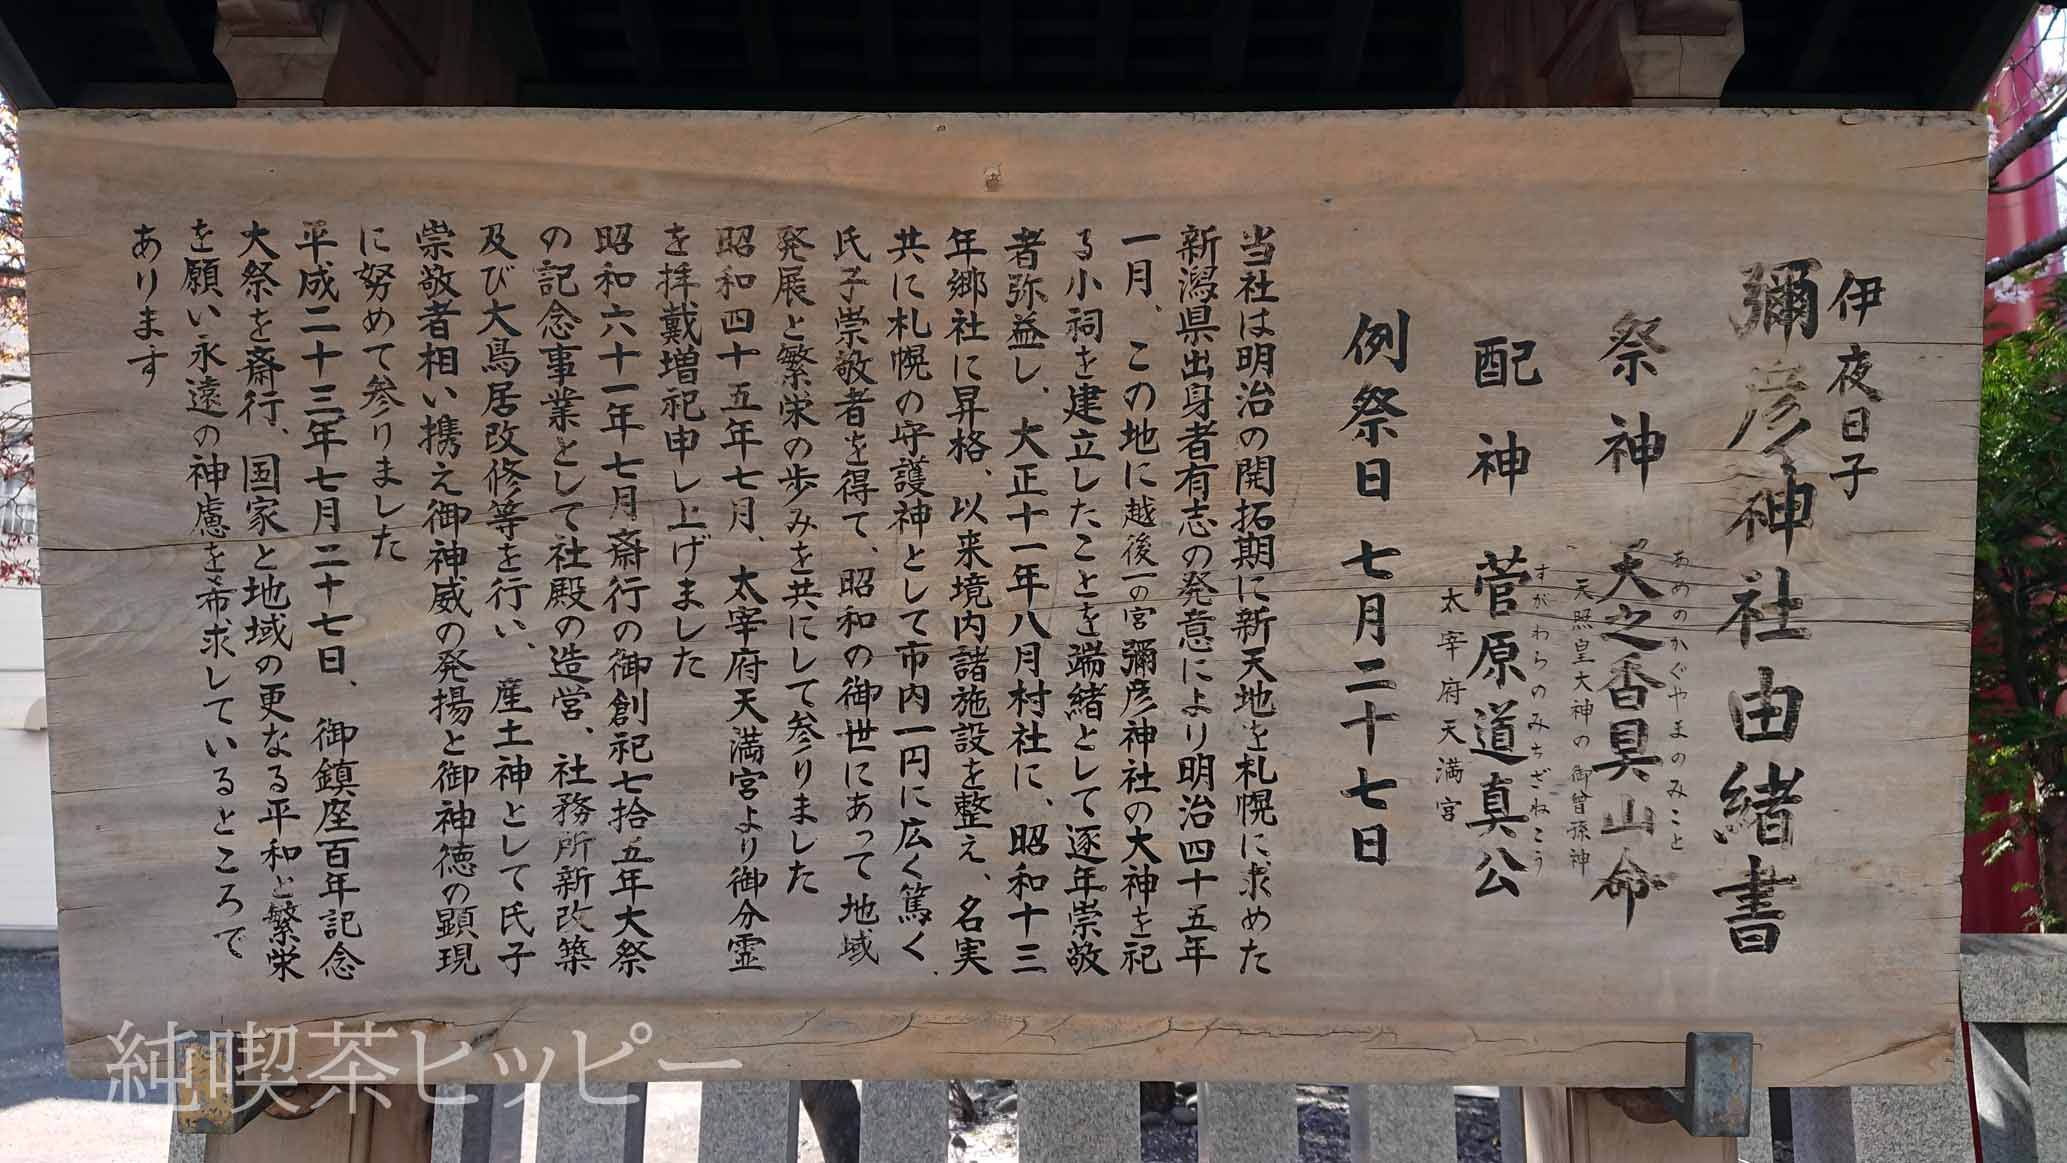 伊夜日子
彌彦神社由緒書
祭神 天之香具山命
あめのかぐやまのみこと
天照皇大神の御曾孫神
配神 菅原道真公
すがわらのみちざねこう
太宰府天満宮
例祭日 七月二十七日
当社は明治の開拓期に新天地を札幌に求めた
新潟県出身者有志の発意により明治四十五年
一月、この地に越後一の宮彌彦神社の大神を祀
る小祠を建立したことを端緒として逐年崇敬
者弥益し、大正十一年八月村社に、昭和十三
年郷社に昇格、以来境内諸施設を整え、名実
共に札幌の守護神として市内一円に広く篤く
氏子崇敬者を得て、昭和の御世にあって地域
発展と繁栄の歩みを共にして参りました
昭和四十五年七月、太宰府天満宮より御分霊
を拝戴増祀申し上げました
昭和六十一年七月斎行の御創祀七拾五年大祭
の記念事業として社殿の造営、社務所新改築
及び大鳥居改修等を行い、産土神として氏子
崇敬者相い携え御神威の発揚と御神徳の顕現
に努めて参りました
平成二十三年七月二十七日、御鎮座百年記念
大祭を斎行、国家と地域の更なる平和と繁栄
を願い永遠の神慮を希求しているところで
あります
純喫茶ヒッピー